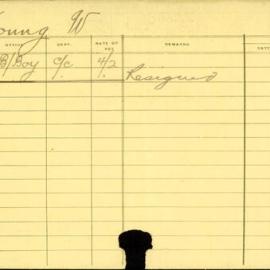 Young W
OFFICE DEPT. RATE OF PAY REMARKS
B/Boy C/C 4/2 Resigned